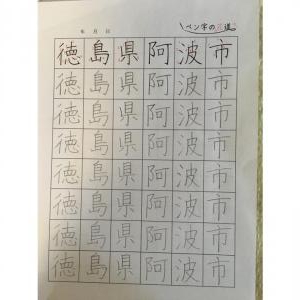 年 月 日
ペン字の
徳島県阿波市
徳島県阿波市
徳島県阿波市
徳島県阿波市
徳島県阿波市
徳島県阿波市
徳島県阿波市
徳島県阿波市